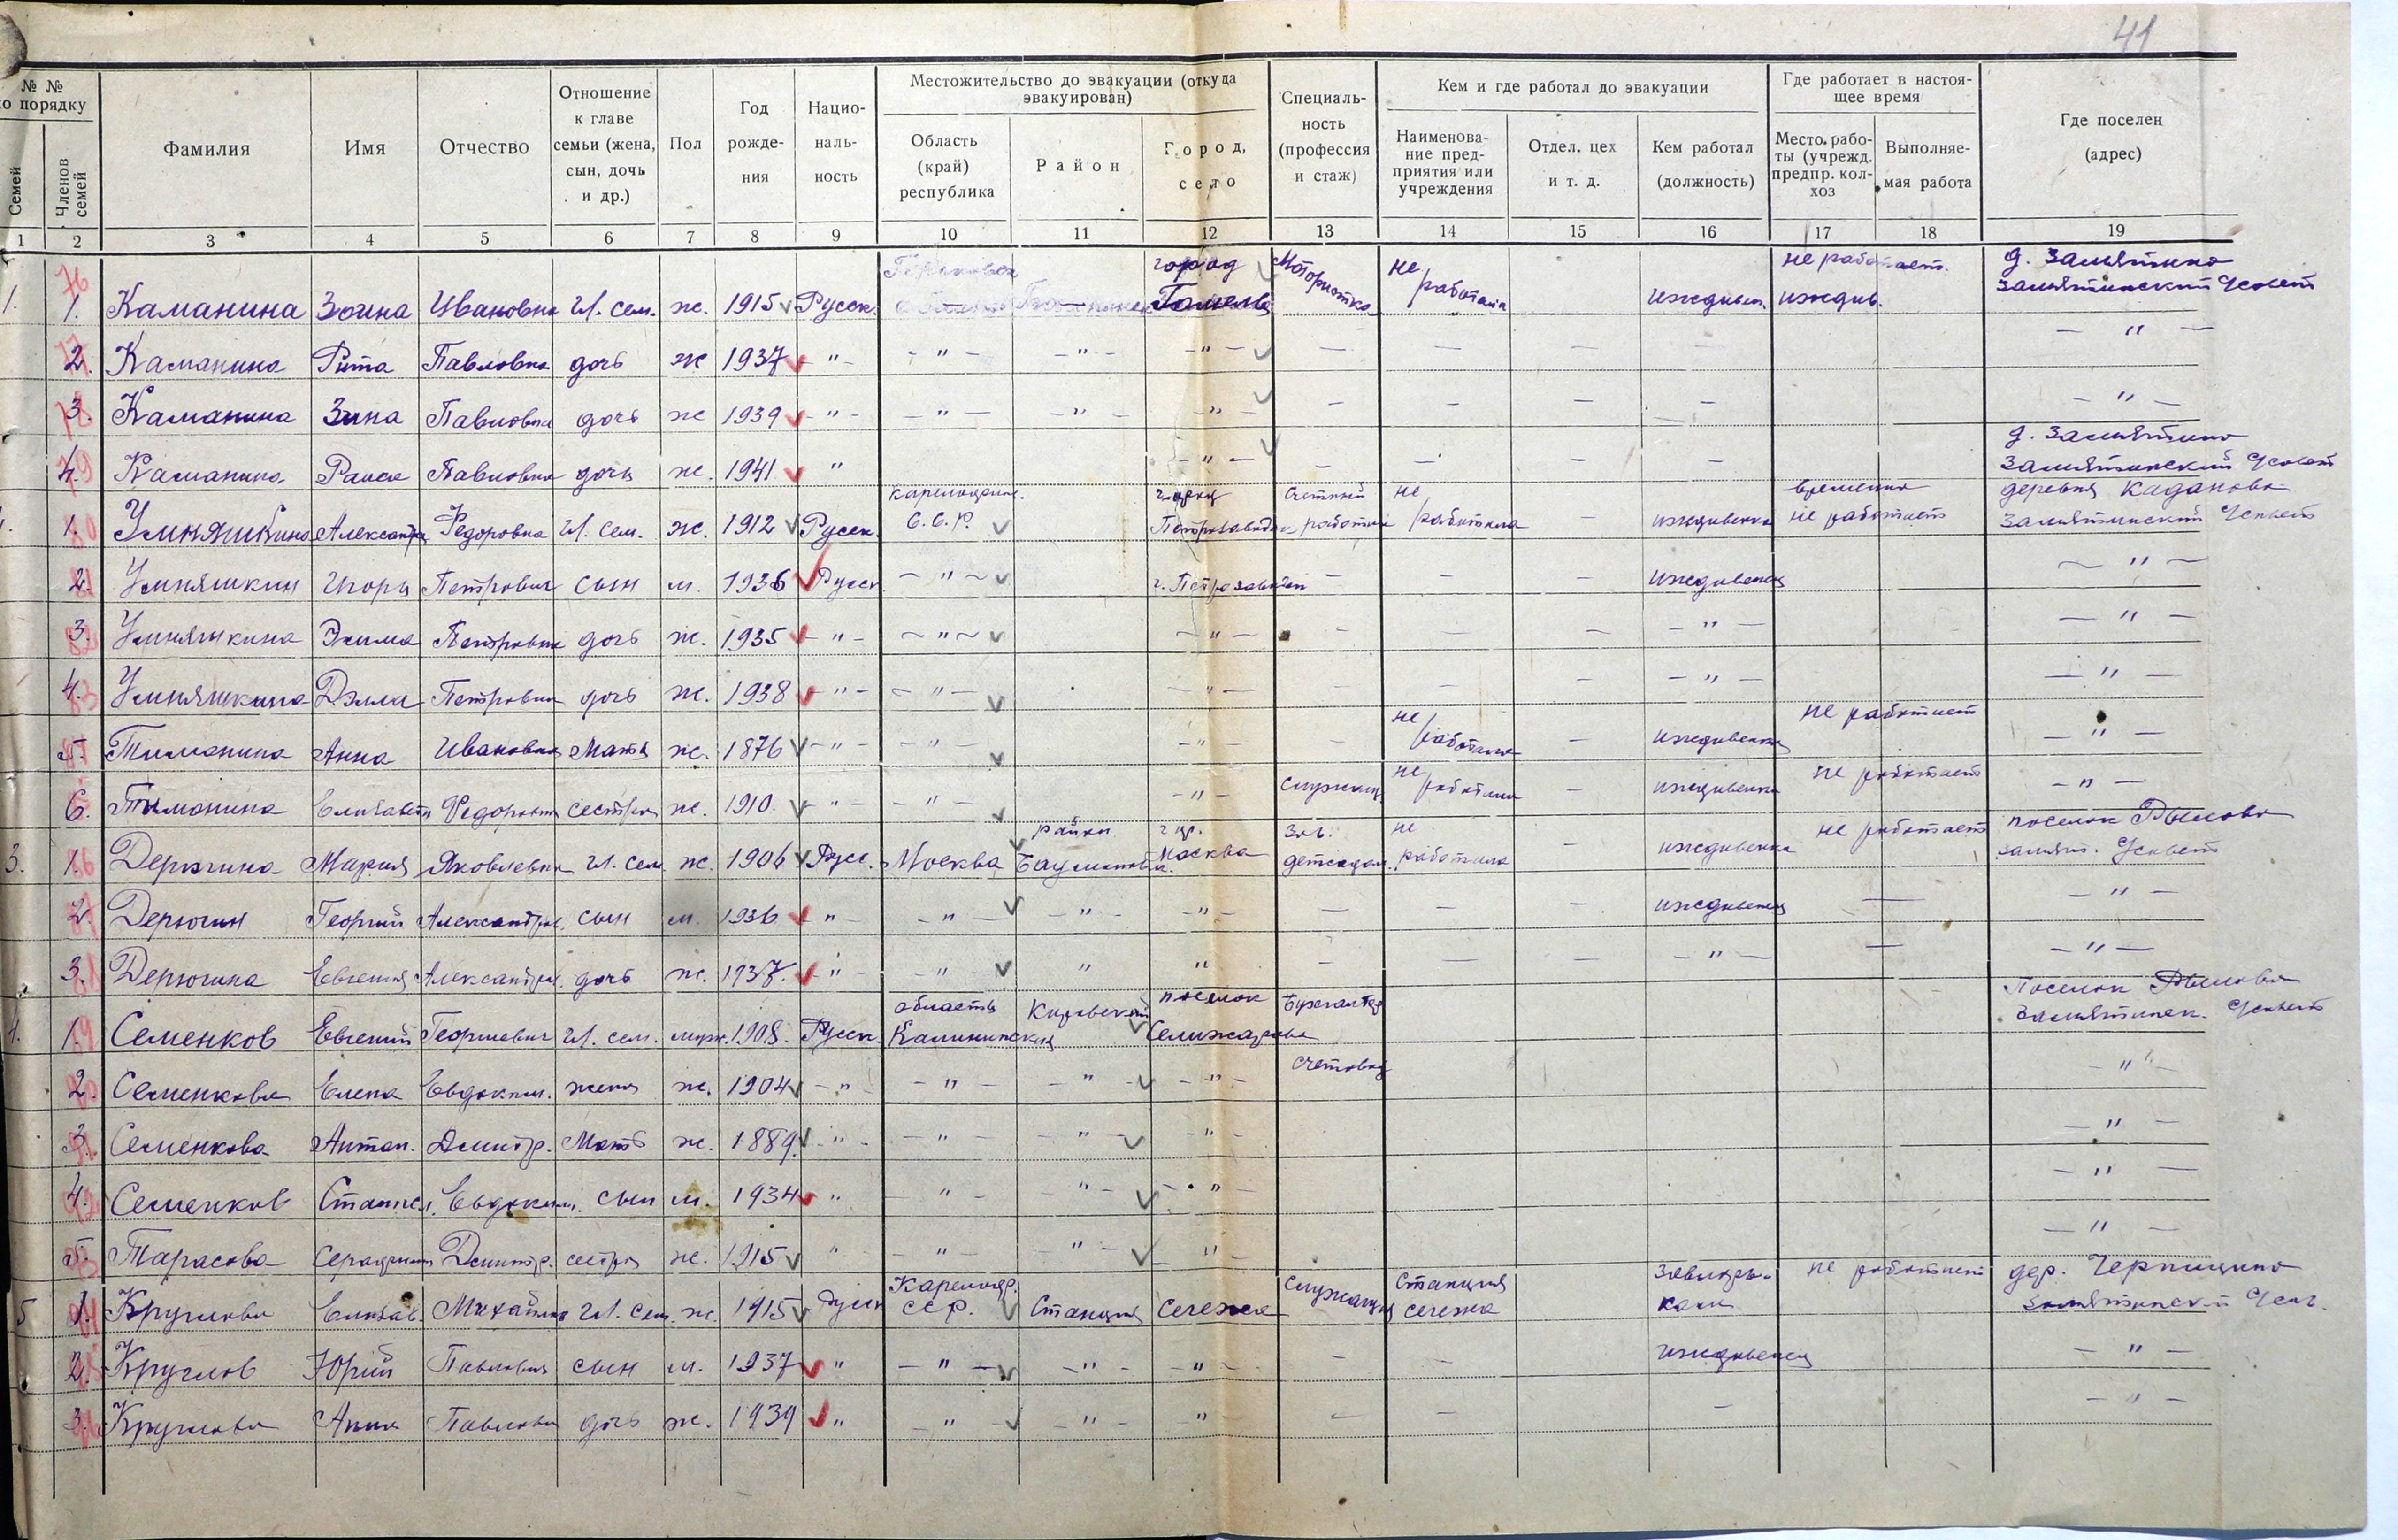 41
№ № по порядку | Фамилия | Имя | Отчество | Отношение к главе семьи (жена, сын, дочь и др.) | Пол | Год рождения | Националь-ность | Местожительство до эвакуации (откуда эвакуирован) | Специаль-ность (профессия и стаж) | Кем и где работал до эвакуации | Где работает в настоя-щее время | Где поселен (адрес)
Семей | Членов семей | Область (край) республика | Район | Город, село | Наименова-ние пред-приятия или учреждения | Отдел, цех и т. д. | Кем работал (должность) | Место рабо-ты (учрежд. предпр. кол-хоз | Выполняе-мая работа
1 | 2 | 3 | 4 | 5 | 6 | 7 | 8 | 9 | 10 | 11 | 12 | 13 | 14 | 15 | 16 | 17 | 18 | 19
1. | 76 1. | Каманина | Зоина | Ивановна | Гл. сем. | ж. | 1915 | Русск. | город Гомель | Мотористка | не работала | иждивен. | не работает. иждив. | д. Замятино Замятинский Усовет
2. | Каманина | Рита | Павловна | дочь | ж | 1937 | - " - | - " - | - " - | - " - | — | — | — | — | — " —
78 3. | Каманина | Зина | Павловна | дочь | ж | 1939 | - " - | — " — | — " — | - " - | — | — | — | — | — " —
79 4. | Каманина | Раиса | Павловна | дочь | ж. | 1941 | " | - " - | — | — | — | — | д. Замятино Замятинский Усовет
80 1. | Умняшкина | Александра | Федоровна | Гл. сем. | ж. | 1912 | Русск. | С.С.Р. | город Петрозаводск | счетный работник | не работала | — | иждивенка | временно не работает | деревня Каданово Замятинский Усовет
2. | Умняшкин | Игорь | Петрович | сын | м. | 1936 | Русск | - " - | г. Петрозаводск | — | — | — | иждивенец | — " —
3. | Умняшкина | Петровна | дочь | ж. | 1935 | - " - | - " - | - " - | — | — | - " - | — " —
83 4. | Умняшкина | Дэлла | Петровна | дочь | ж. | 1938 | - " - | - " - | - " - | — | — | — | - " - | — " —
5. | Тиманина | Анна | Ивановна | Мать | ж. | 1876 | - " - | - " | - " - | — | не работала | — | иждивенка | не работает | — " —
6. | Тиманина | Елизавета | Федоровна | сестра | ж. | 1910. | - " - | - " - | - " - | служащ. | не работала | — | иждивенка | не работает | — " —
3. | 1. | Дерюгина | Мария | Яковлевна | Гл. сем. | ж. | 1906 | Русс. | Москва | район Бауманский | гор. Москва | зав. детсадом. | не работала | — | иждивенка | не работает | поселок Замят. Усовет
2. | Дерюгин | Георгий | Александров. | сын | м. | 1936 | " | - " - | " | - " - | — | — | — | иждивенец | — | — " —
3. | Дерюгина | Евгения | Александров. | дочь | ж. | 1937. | - " - | - " | " | " | — | — | — | - " - | — | — " —
4. | 1. | Семенков | Евгений | Георгиевич | Гл. сем. | муж. | 1908. | Русск. | область Калининская | Кировский | поселок Селижарово | Бухгалтер | Поселок Замятинск. Усовет
2. | Семенкова | Елена | Евдоким. | жена | ж. | 1904 | - " - | - " - | - " - | - " - | счетовод | — " —
3. | Семенкова | Антон. | Дмитр. | Мать | ж. | 1889. | - " - | - " - | - " - | - " - | — " —
4. | Семенков | Станисл. | Евдоким. | сын | м. | 1934 | " | - " - | " - | - " - | — " —
5 | Тарасова | Серафима | Дмитр. | сестра | ж. | 1915 | " | - " - | - " - | - " - | — " —
5 | 1. | Круглова | Елизав. | Михайлов | Гл. сем. | ж. | 1915 | Русск | ССР. | Станция | Сегежа | Служащая | Станция Сегежа | не работает | дер. Черницино Замятинский Усов.
2. | Круглов | Юрий | Павлович | сын | м. | 1937 | " | - " - | - " - | - " - | — | — | иждивенец | — " —
3. | Круглова | Анна | Павловн | дочь | ж. | 1939 | " | - " - | - " - | - " - | — | — | — | — " —